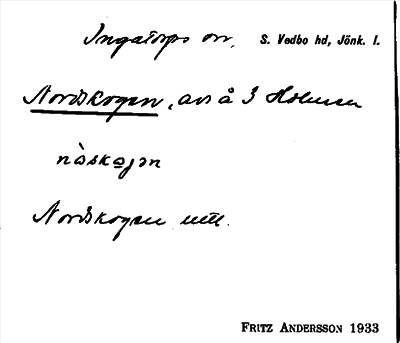 Ingatorps sn, S. Vedbo hd, Jönk. l.
Nordskogen, avs å 3 Holmen
nɷ̀skoɡən
Nordskogen utt.
FRITZ ANDERSSON 1933